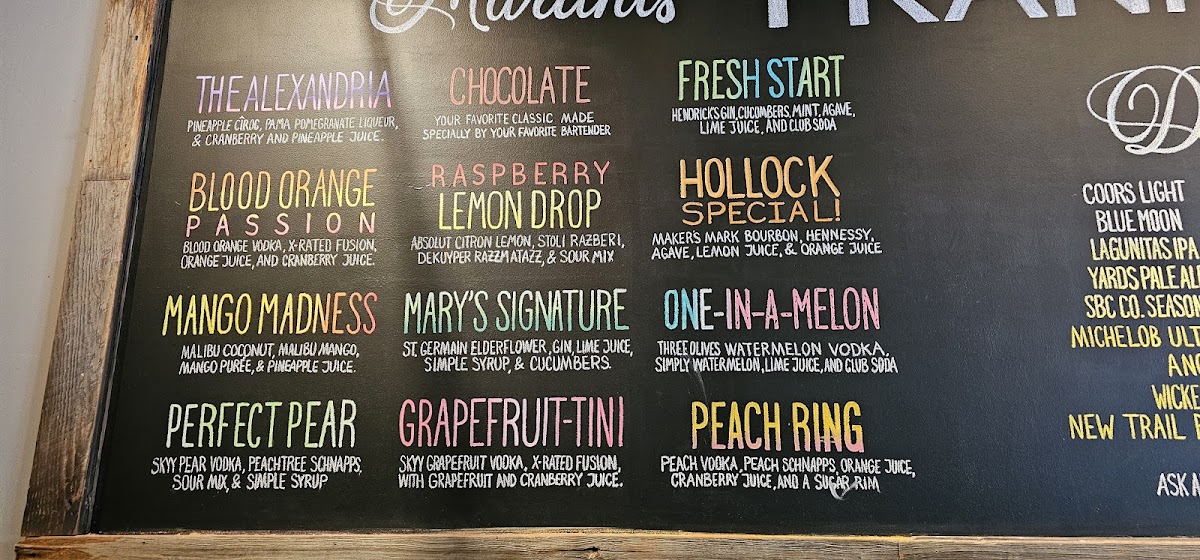 Martinis
THE ALEXANDRIA
PINEAPPLE CÎROC, PAMA POMEGRANATE LIQUEUR,
& CRANBERRY AND PINEAPPLE JUICE.
BLOOD ORANGE
PASSION
BLOOD ORANGE VODKA, X-RATED FUSION,
ORANGE JUICE, AND CRANBERRY JUICE.
MANGO MADNESS
MALIBU COCONUT, MALIBU MANGO,
MANGO PURÉE, & PINEAPPLE JUICE.
PERFECT PEAR
SKYY PEAR VODKA, PEACHTREE SCHNAPPS,
SOUR MIX, & SIMPLE SYRUP
CHOCOLATE
YOUR FAVORITE CLASSIC MADE
SPECIALLY BY YOUR FAVORITE BARTENDER
RASPBERRY
LEMON DROP
ABSOLUT CITRON LEMON, STOLI RAZBERI,
DEKUYPER RAZZMATAZZ, & SOUR MIX
MARY'S SIGNATURE
ST. GERMAIN ELDERFLOWER, GIN, LIME JUICE,
SIMPLE SYRUP, & CUCUMBERS.
GRAPEFRUIT-TINI
SKYY GRAPEFRUIT VODKA, X-RATED FUSION,
WITH GRAPEFRUIT AND CRANBERRY JUICE.
FRESH START
HENDRICK'S GIN, CUCUMBERS, MINT, AGAVE,
LIME JUICE, AND CLUB SODA
HOLLOCK
SPECIAL!
MAKER'S MARK BOURBON, HENNESSY,
AGAVE, LEMON JUICE, & ORANGE JUICE
ONE-IN-A-MELON
THREE OLIVES WATERMELON VODKA,
SIMPLY WATERMELON, LIME JUICE, AND CLUB SODA
PEACH RING
PEACH VODKA, PEACH SCHNAPPS, ORANGE JUICE,
CRANBERRY JUICE, AND A SUGAR RIM
D
COORS LIGHT
BLUE MOON
LAGUNITAS IPA
YARDS PALE AL
SBC CO. SEASON
MICHELOB ULT
WICKE
NEW TRAIL
ASK